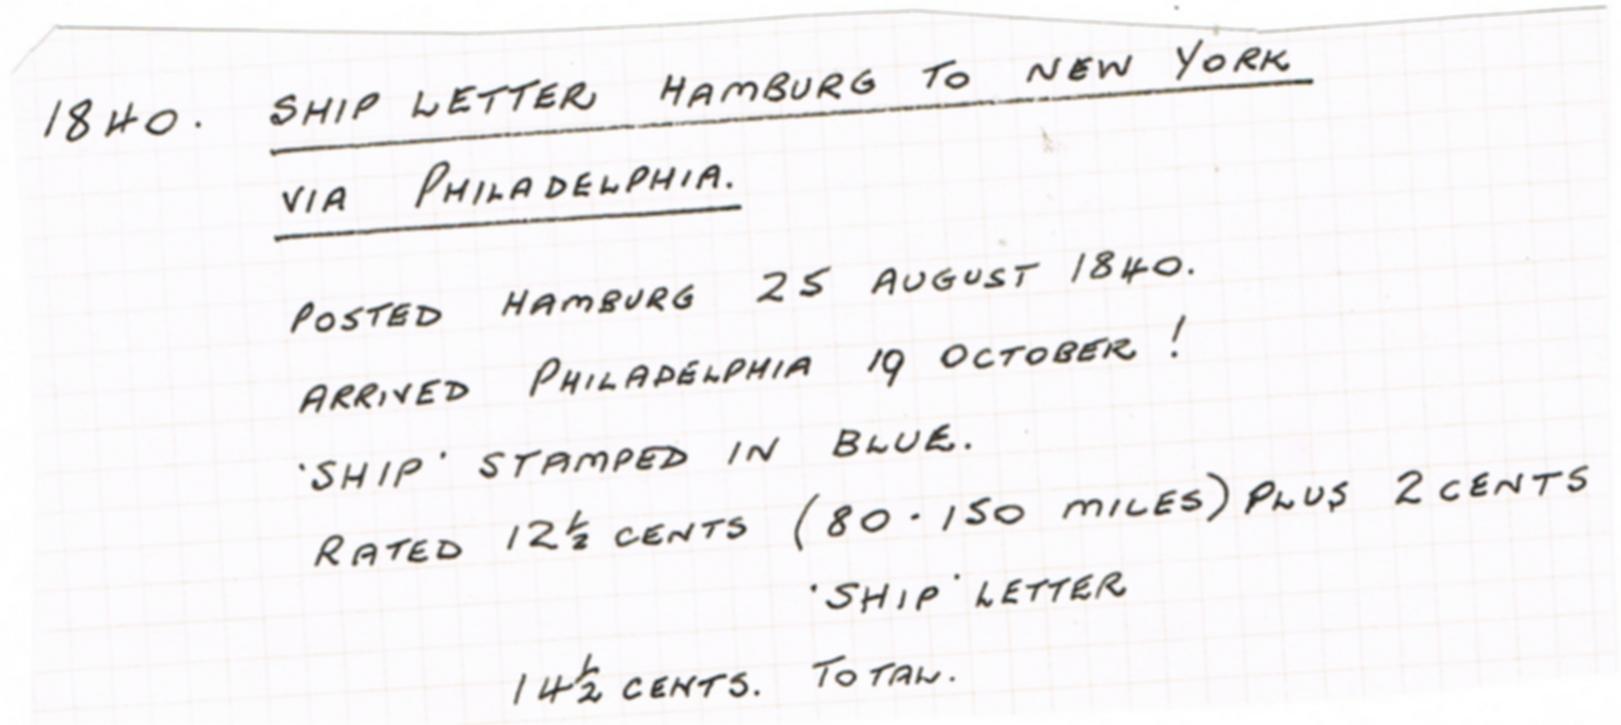 1840. SHIP LETTER HAMBURG TO NEW YORK
VIA PHILADELPHIA.
POSTED HAMBURG 25 AUGUST 1840.
ARRIVED PHILADELPHIA 19 OCTOBER!
'SHIP' STAMPED IN BLUE.
RATED 12½ CENTS (80-150 MILES) PLUS 2 CENTS
'SHIP' LETTER
14½ CENTS. TOTAL.